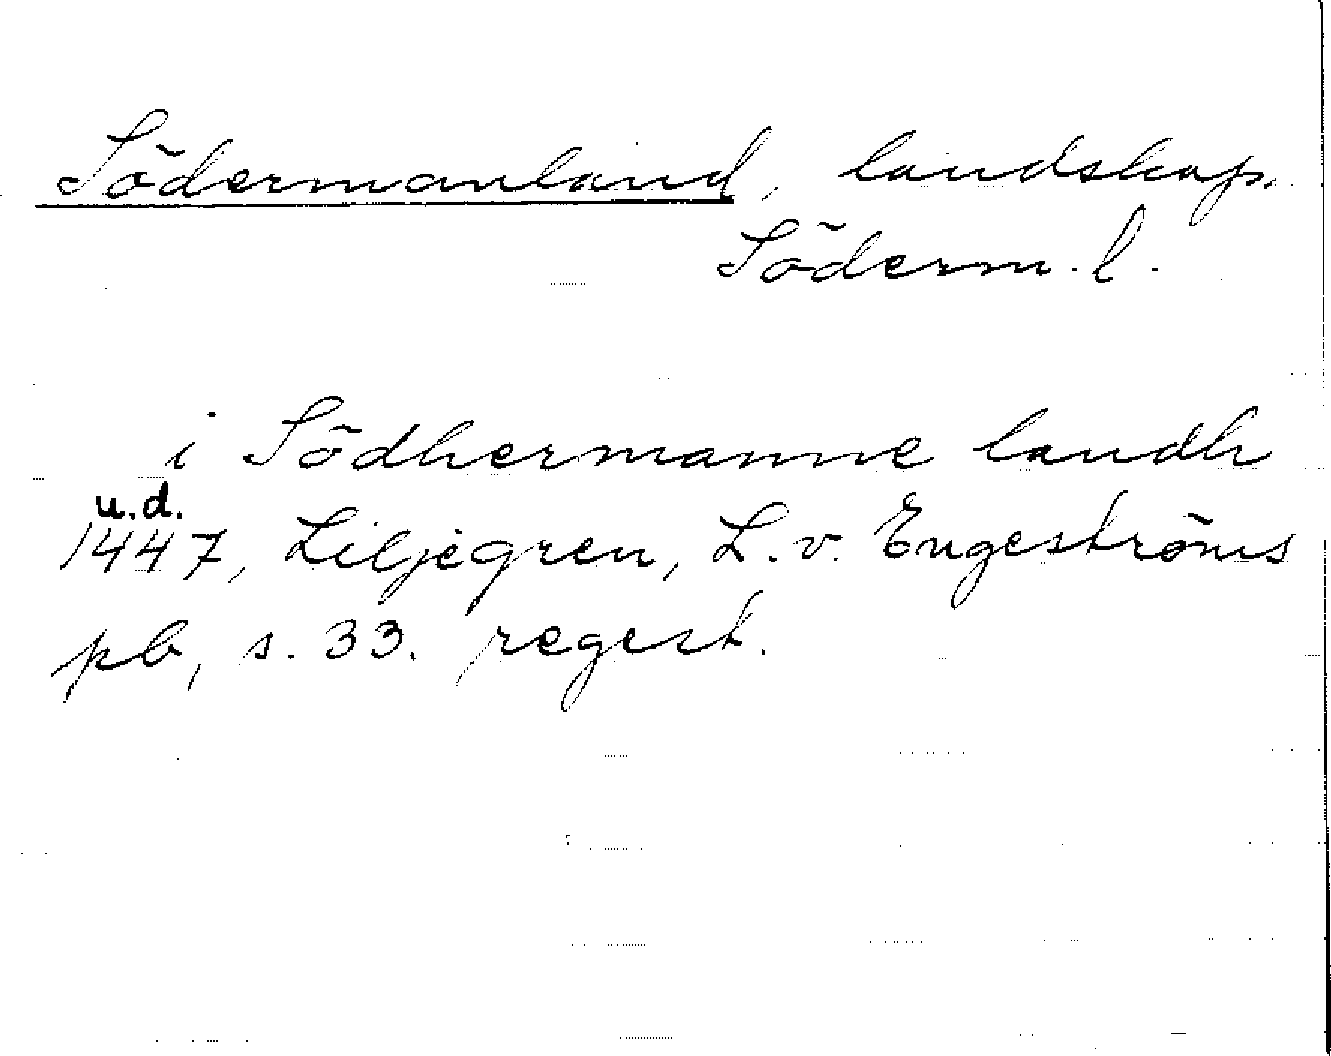 Södermanland, landskap.
Söderm. l.
i Södhermanne landh
u.d.
1447, Liljegren, L. v. Engeströms
pb, s. 33. regest.